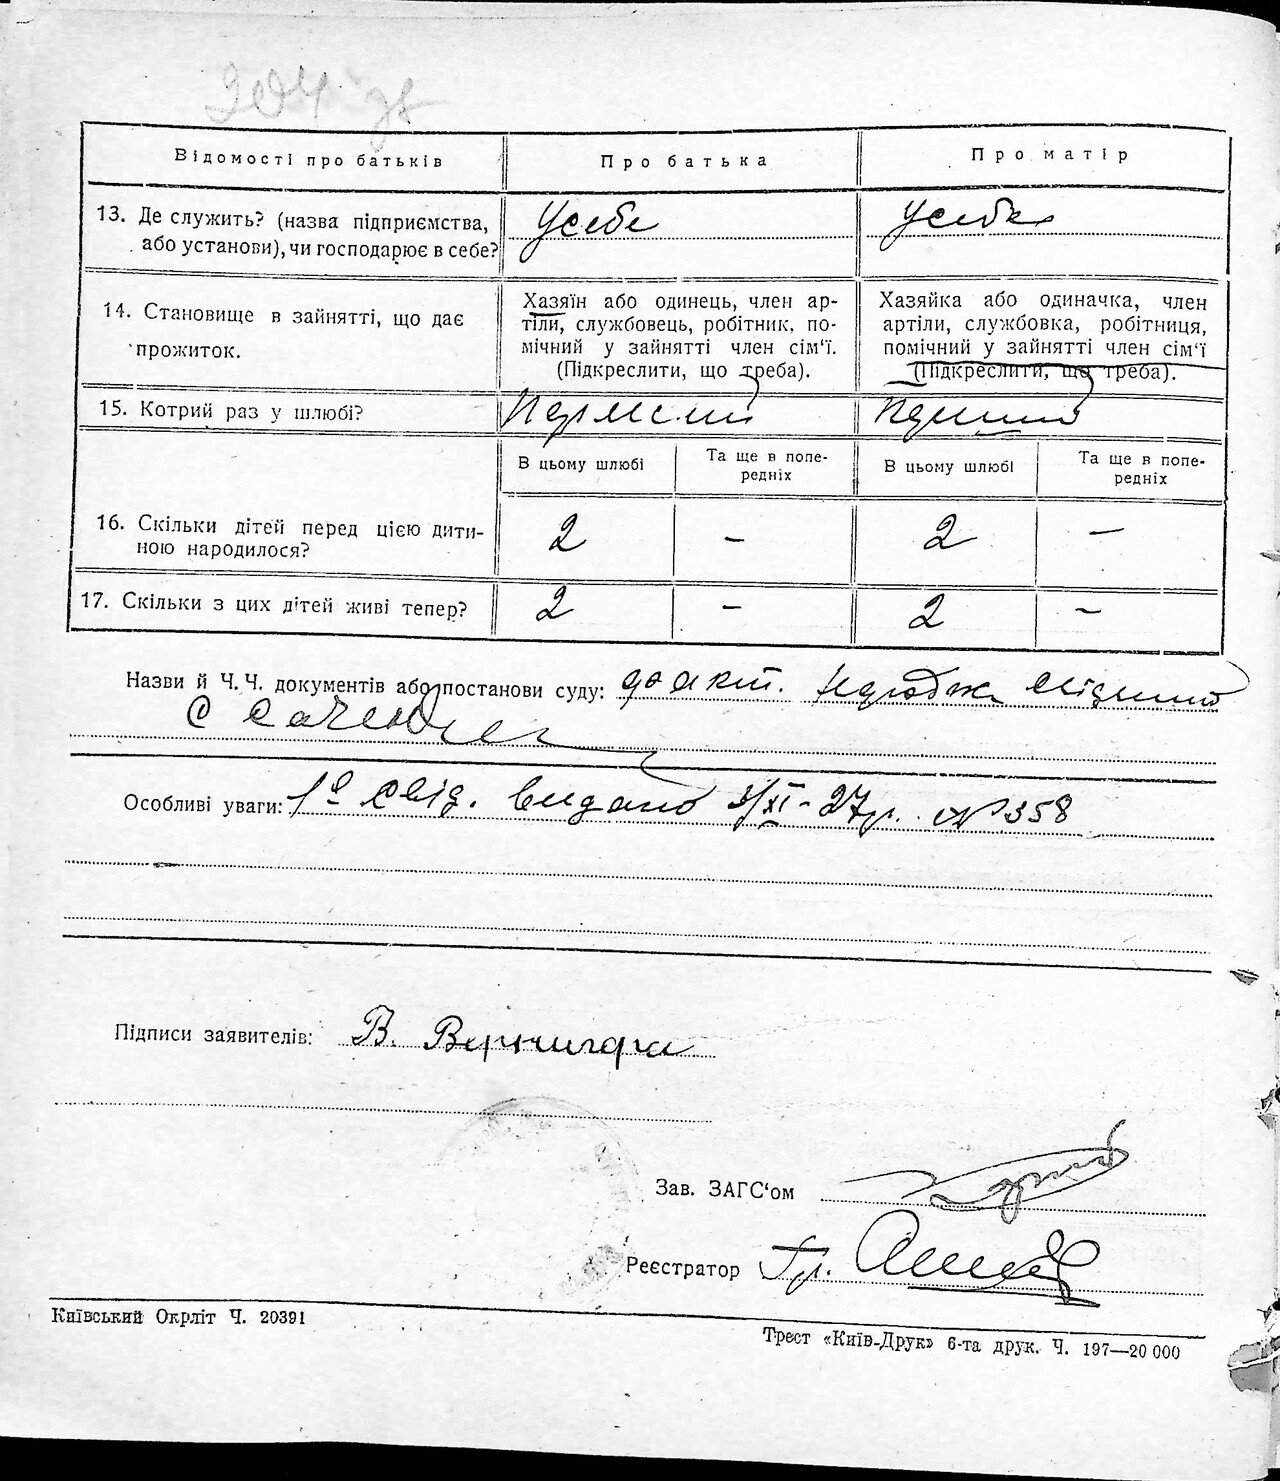 204 зв
Відомості про батьків
Про батька
Про матір
13. Де служить? (назва підприємства, або установи), чи господарює в себе?
Усебе
Усебе
14. Становище в зайнятті, що дає прожиток.
Хазяїн або одинець, член ар-
тіли, службовець, робітник, по-
мічний у зайнятті член сім'ї.
(Підкреслити, що треба).
Хазяйка або одиначка, член
артіли, службовка, робітниця,
помічний у зайнятті член сім'ї
(Підкреслити, що треба).
15. Котрий раз у шлюбі?
Первший
Перший
В цьому шлюбі
Та ще в попе-
редніх
В цьому шлюбі
Та ще в попе-
редніх
16. Скільки дітей перед цією дити-
ною народилося?
2
–
2
–
17. Скільки з цих дітей живі тепер?
2
–
2
–
Назви й Ч. Ч. документів або постанови суду:
Особливі уваги: 1е свід. видано 3/XI-27р. № 358
Підписи заявителів: В. Вернигора
Зав. ЗАГС'ом
Реєстратор
Київський Окрліт Ч. 20391
Трест «Київ-Друк» 6-та друк. Ч. 197—20 000